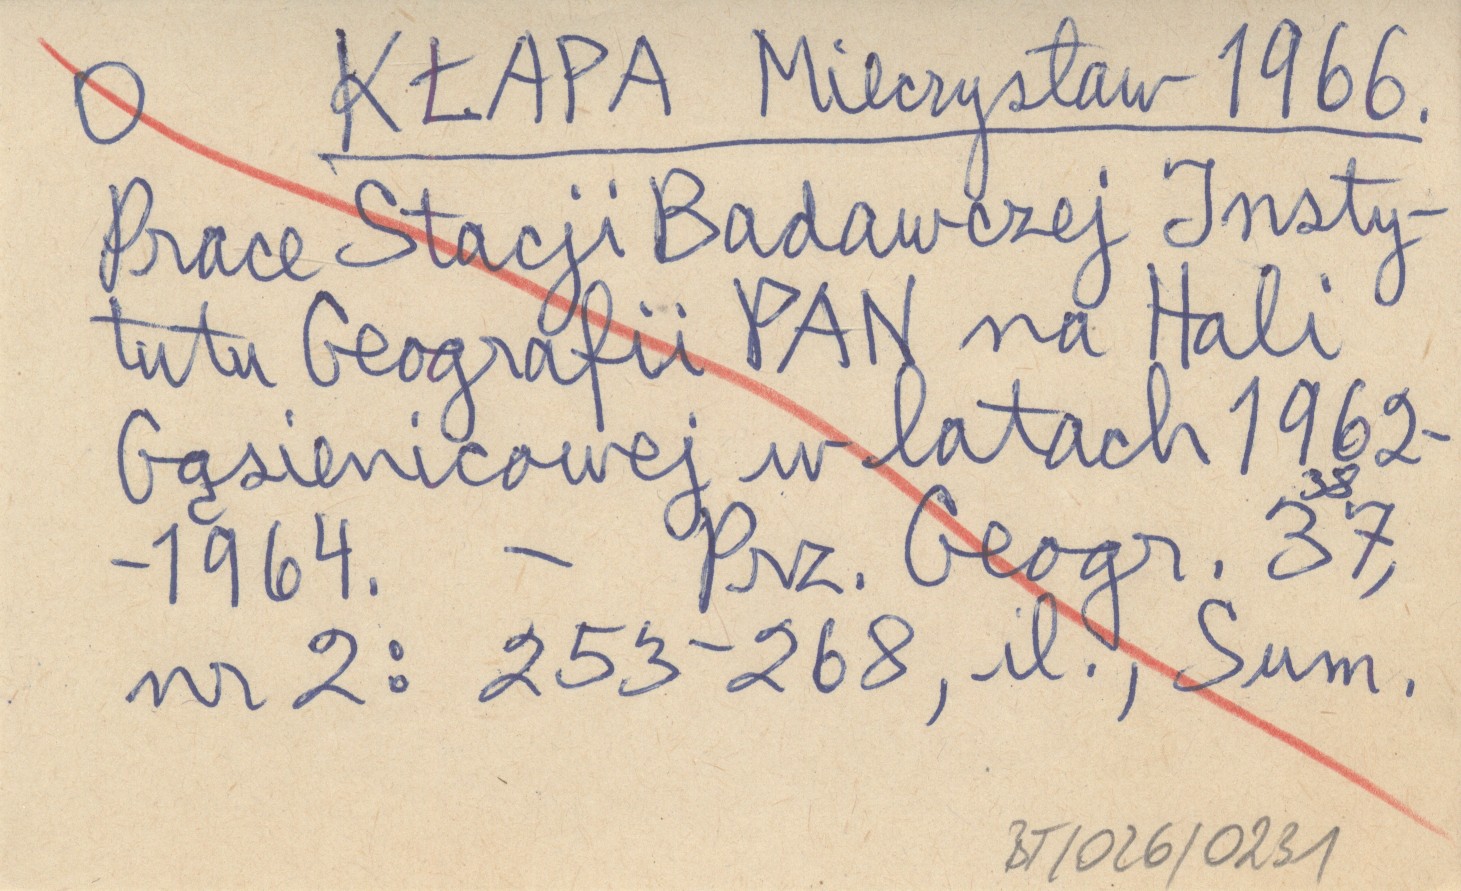 O KŁAPA Mieczysław 1966.
Prace Stacji Badawczej Insty-
tutu Geografii PAN na Hali
Gąsienicowej w latach 1962-
-1964. - Prz. Geogr. 37, 38
nr 2: 253-268, il., Sum.
BT/026/0231